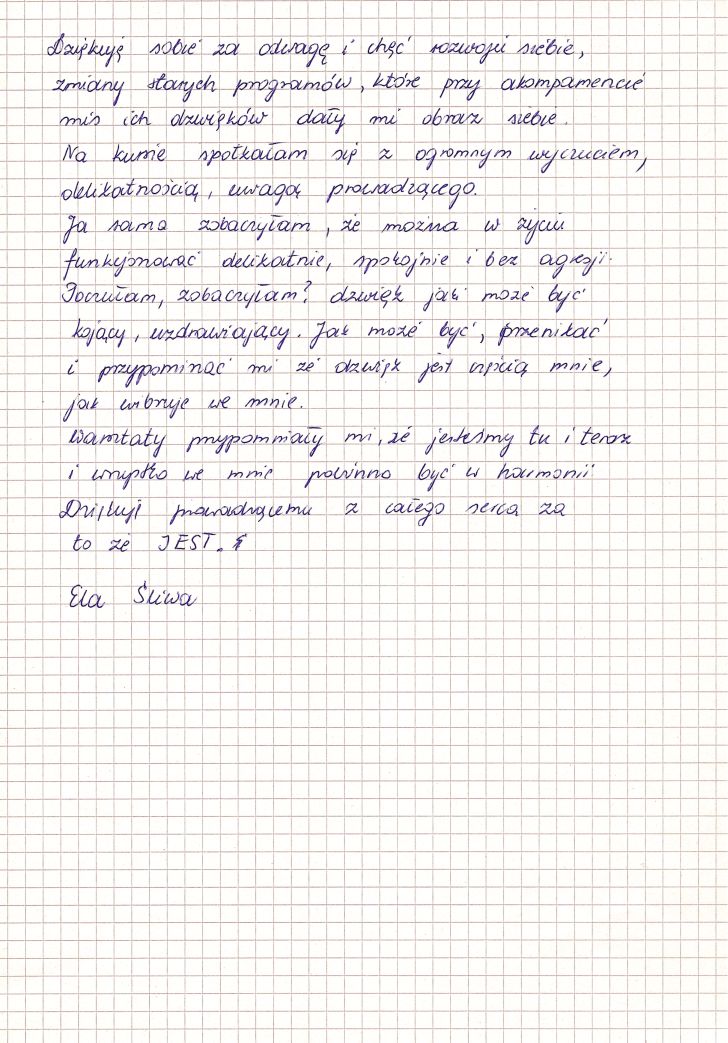 Dziękuję sobie za odwagę i chęć rozwoju siebie,
zmiany starych programów, które przy akompamencie
mis ich dzwięków dały mi obraz siebie.
Na kursie spotkałam się z ogromnym wyczuciem,
delikatnością, uwagą prowadzącego.
Ja sama zobaczyłam, że można w życiu
funkcjonować delikatnie, spokojnie i bez agresji.
Poczułam, zobaczyłam? dzwięk jaki może być
kojący, uzdrawiający. Jak może być, przenikać
i przypominać mi że dzwięk jest częścią mnie,
jak wibruje we mnie.
Warsztaty przypomniały mi, że jesteśmy tu i teraz
i wszystko we mnie powinno być w harmonii
Dziękuję prowadzącemu z całego serca za
to że JEST.
Ela Śliwa